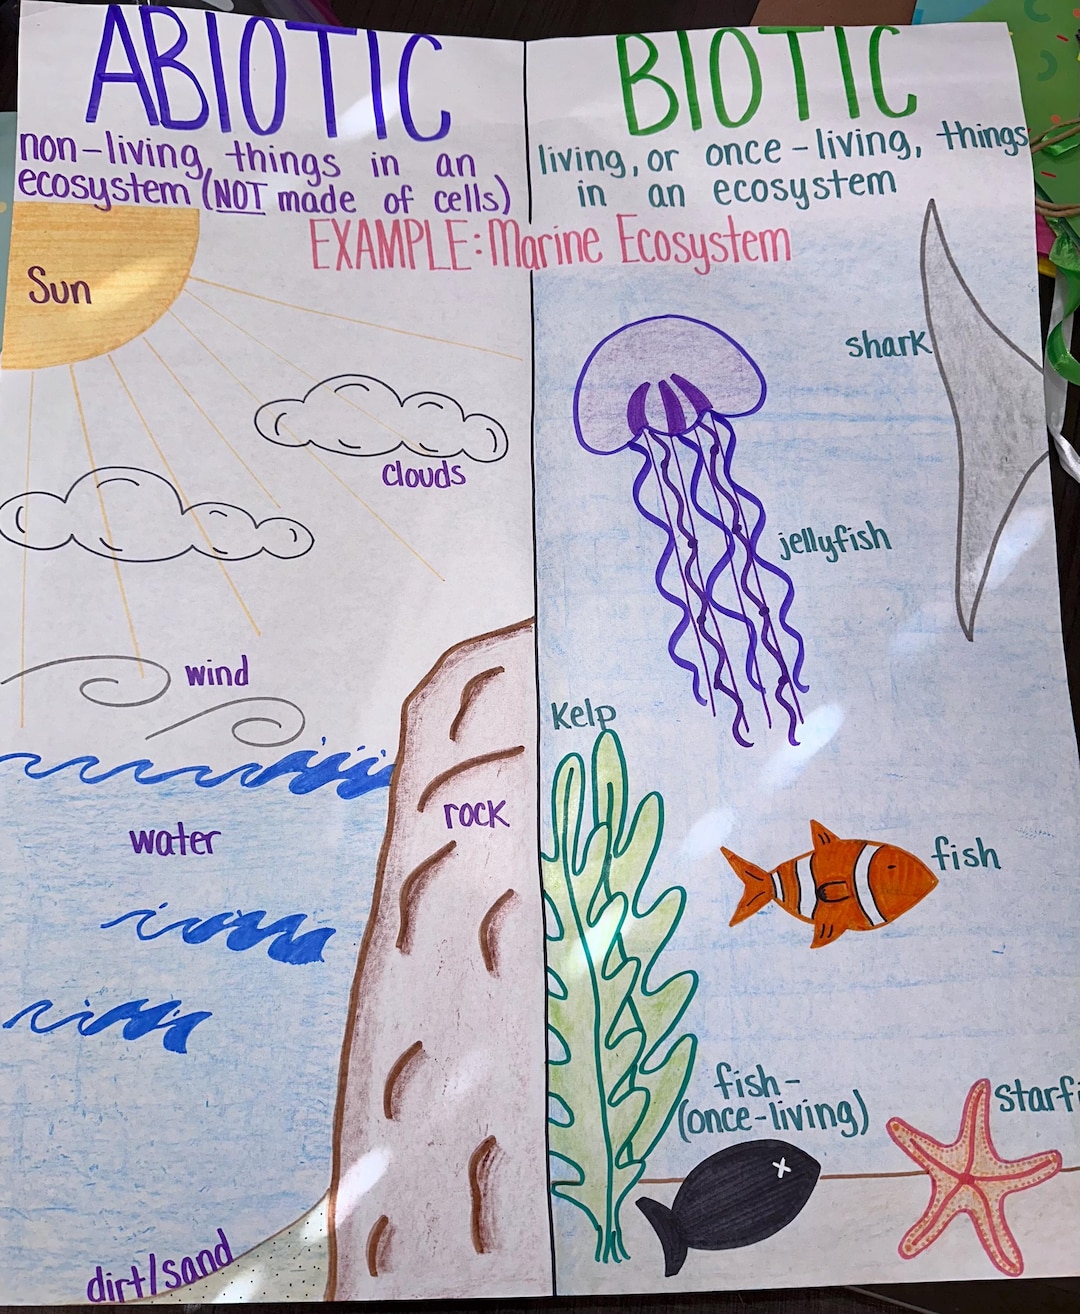 ABIOTIC
non-living things in an
ecosystem (NOT made of cells)
BIOTIC
living, or once-living, things
in an ecosystem
EXAMPLE: Marine Ecosystem
Sun
clouds
wind
water
rock
dirt/sand
shark
jellyfish
Kelp
fish
fish-
(once-living)
starfi